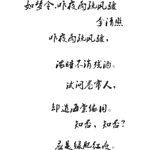 如梦令·昨夜雨疏风骤
李清照
昨夜雨疏风骤，
浓睡不消残酒。
试问卷帘人，
却道海棠依旧。
知否，知否？
应是绿肥红瘦